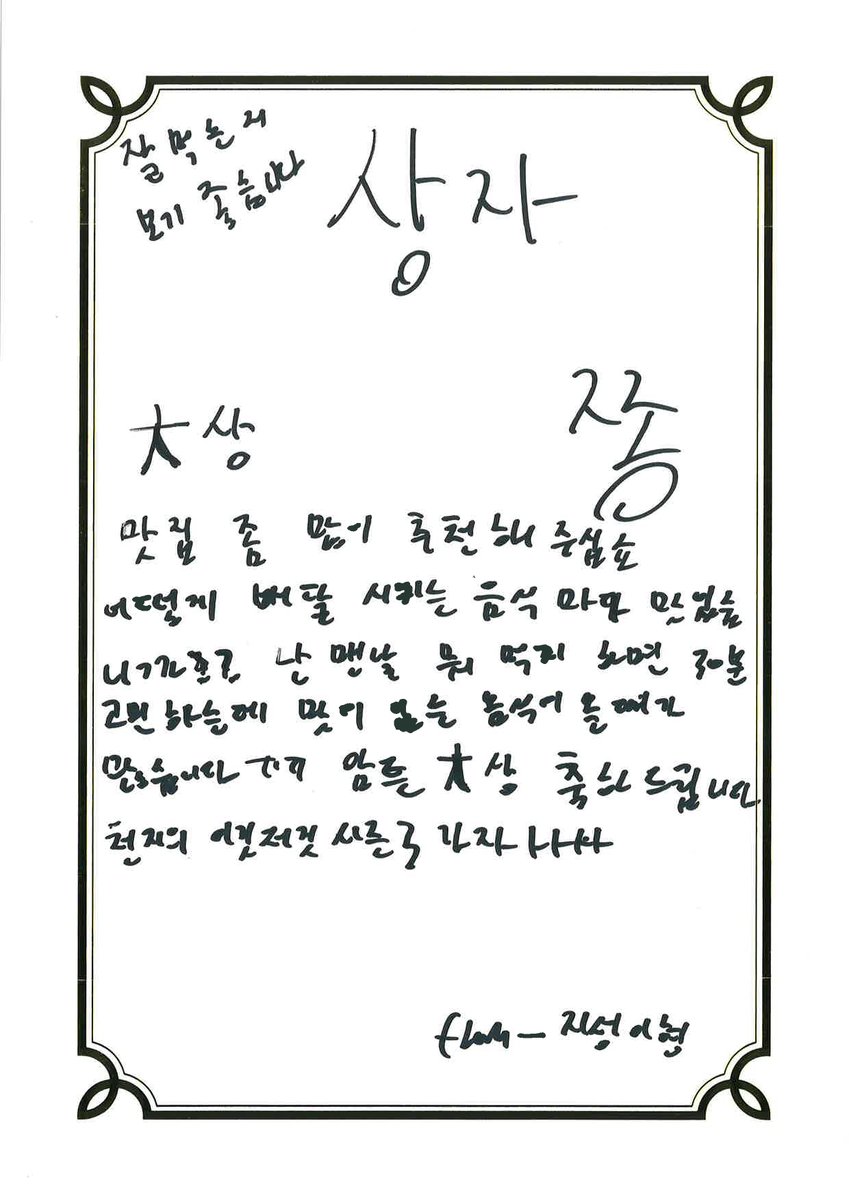 잘 먹는지
보기 좋습니다
상자
大상
쫑
맛집 좀 많이 추천해 주십쇼
어떻게 배달 시키는 음식 마다 맛있습
니까 난 맨날 뭐 먹지 하면 30분
고민하는데 맛이 없는 음식이 올때가
많습니다 大상 축하드립니다
이것저것 가자
지성이형